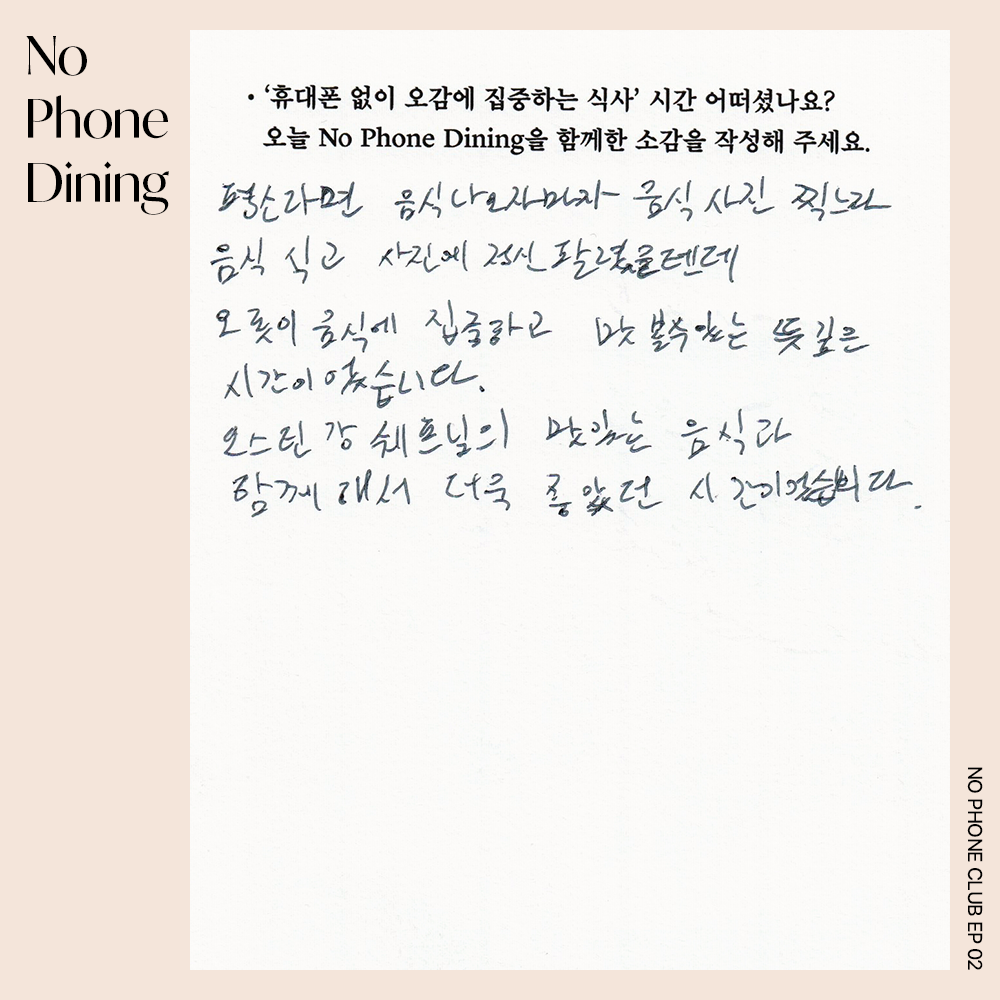 No
Phone
Dining
• ‘휴대폰 없이 오감에 집중하는 식사’ 시간 어떠셨나요?
오늘 No Phone Dining을 함께한 소감을 작성해 주세요.
평소라면 음식나오자마자 음식 사진 찍느라
음식 식고 사진에 정신 팔렸을텐데
오롯이 음식에 집중하고 맛 볼수있는 뜻깊은
시간이었습니다.
오스틴 강 쉐프님의 맛있는 음식과
함께 해서 더욱 좋았던 시간이었습니다.
NO PHONE CLUB EP 02